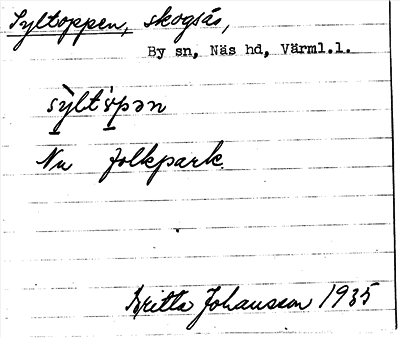 Syltoppen, skogsås,
By sn, Näs hd, Värml.l.
Nu folkpark.
Britta Johansson 1935